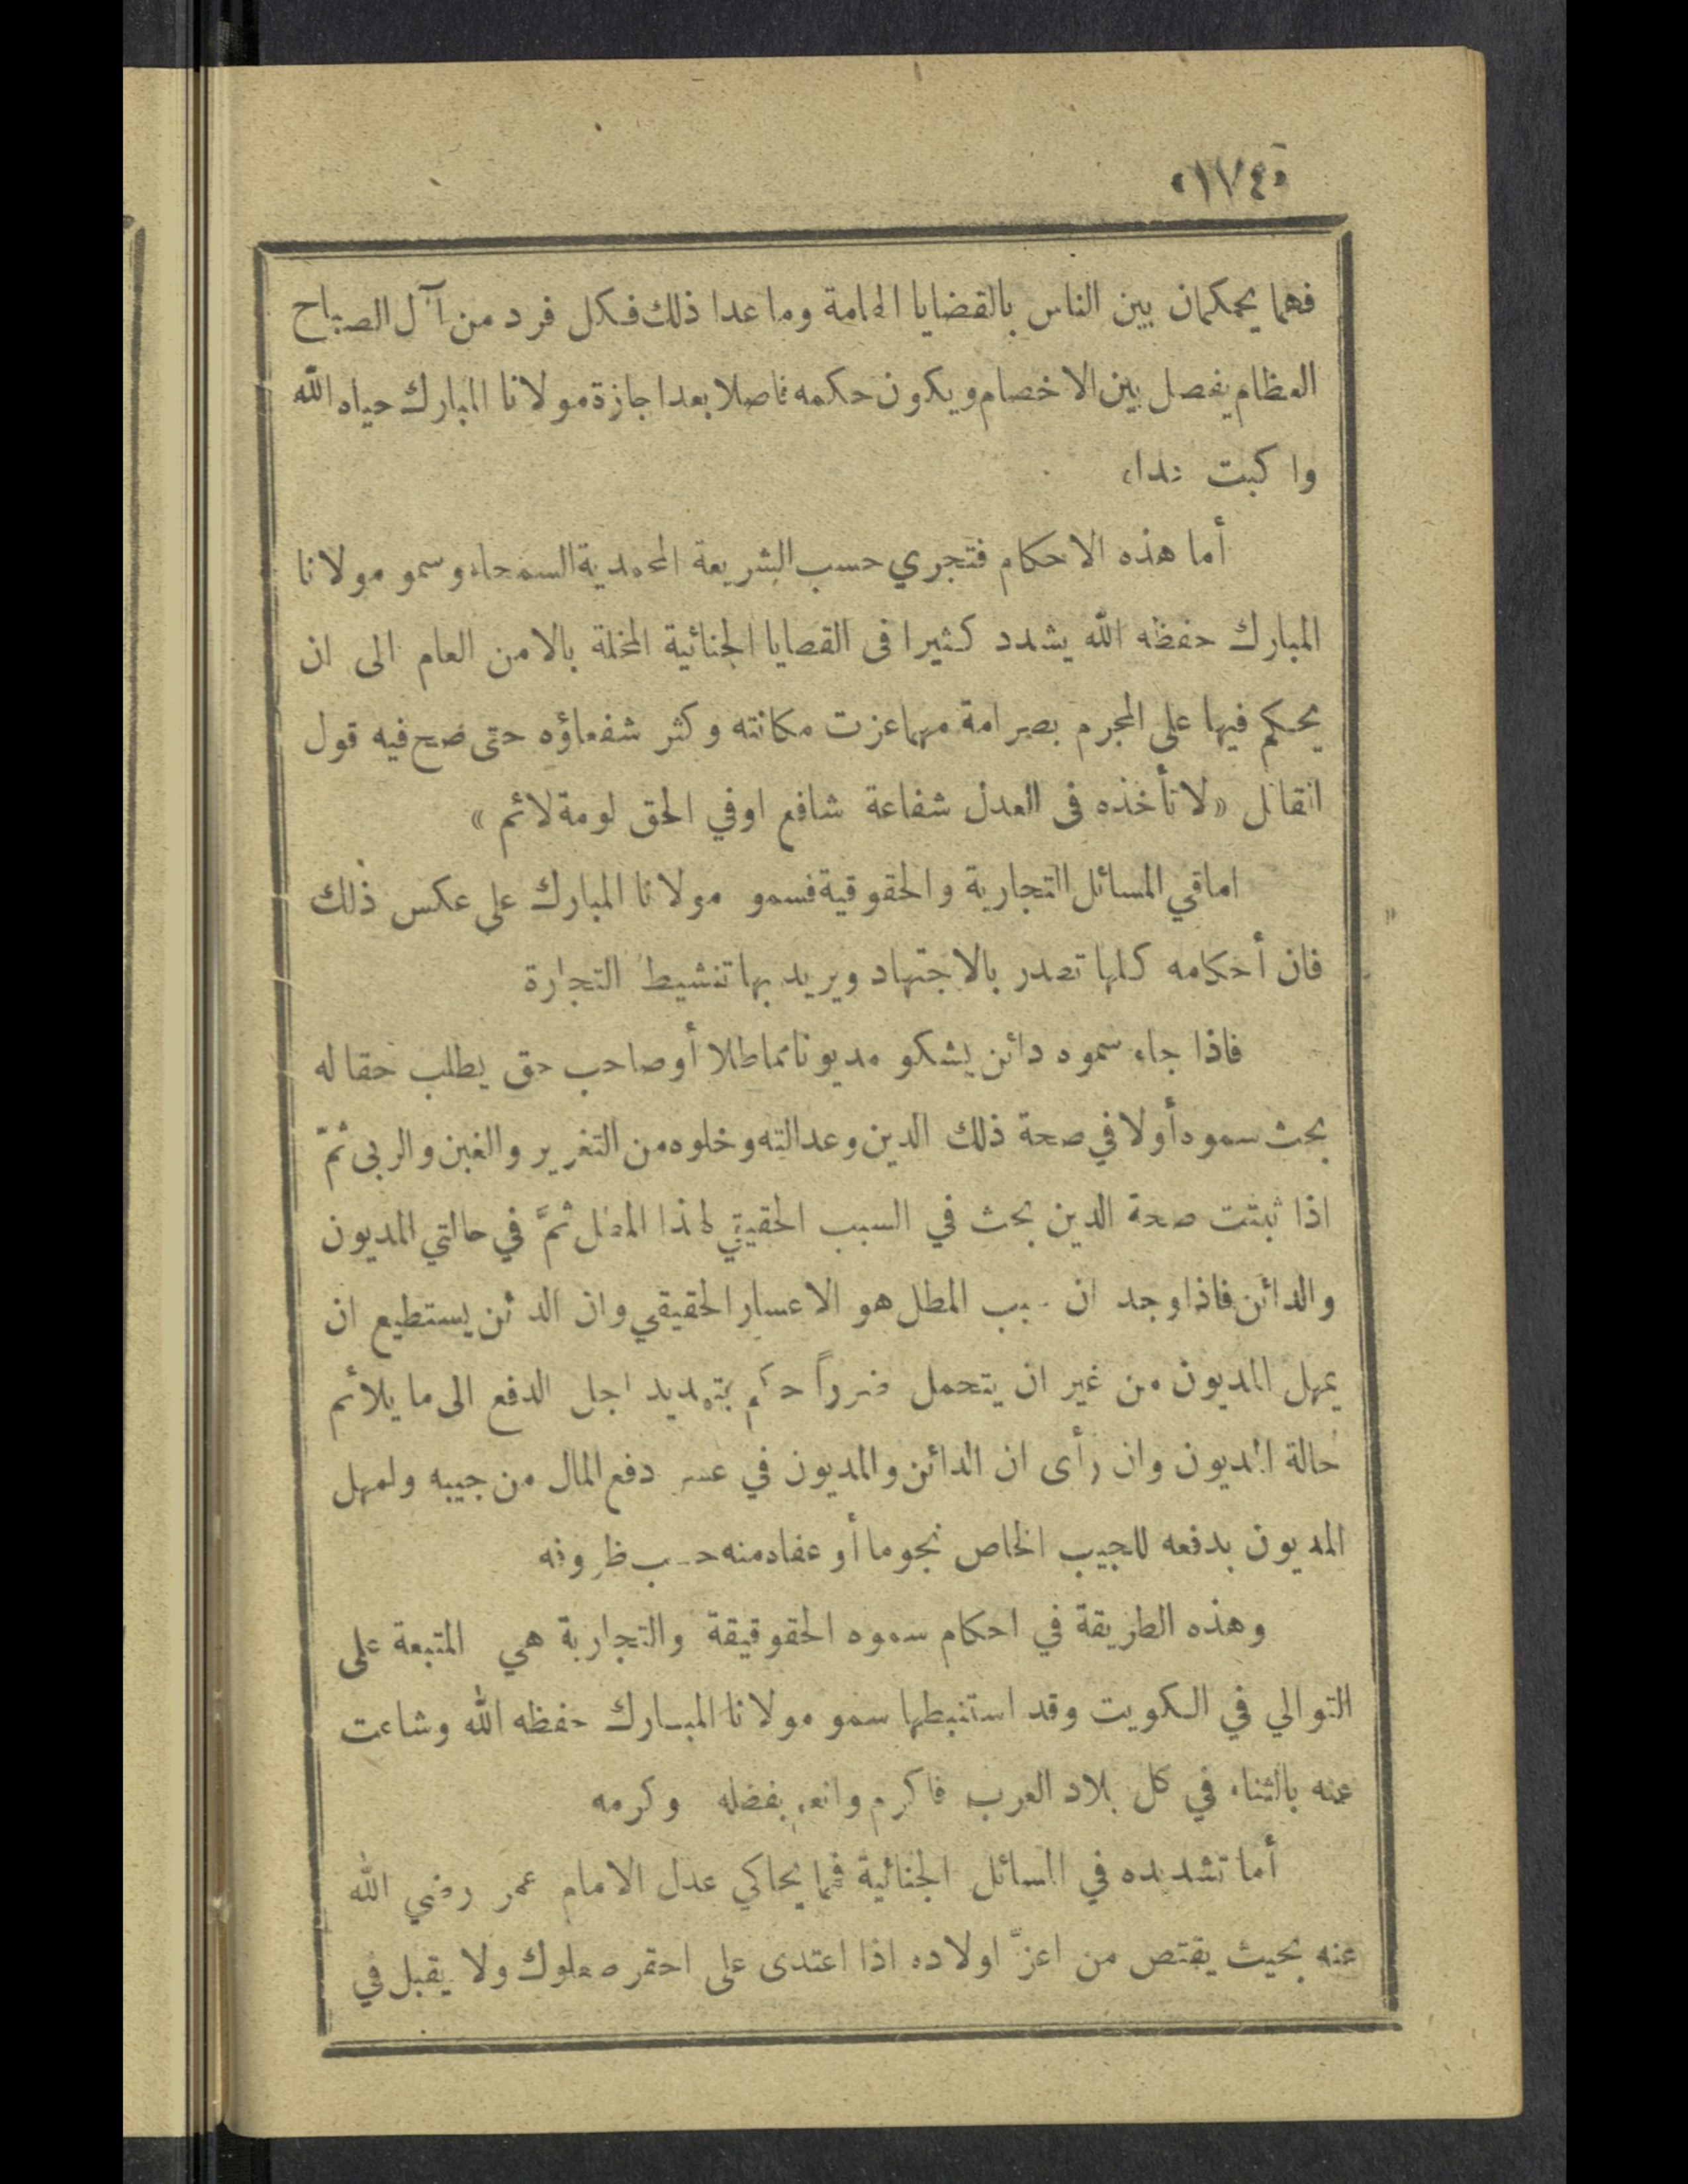 «١٧٤»
فهما يحكمان بين الناس بالقضايا الهامة وما عدا ذلك فكل فرد من آل الصباح
العظام يفصل بين الاخصام ويكون حكمه فاصلا بعد اجازة مولانا المبارك حياه الله
واكبت عداه
أما هذه الاحكام فتجري حسب الشريعة المحمدية السمحاء وسمو مولانا
المبارك حفظه الله يشدد كثيرا فى القصايا الجنائية المخلة بالامن العام الى ان
يحكم فيها على المجرم بصرامة مهما عزت مكانته وكثر شفعاؤه حتى صح فيه قول
القائل «لا تأخذه فى العدل شفاعة شافع اوفي الحق لومة لائم»
اما في المسائل التجارية والحقوقية فسمو مولانا المبارك على عكس ذلك
فان أحكامه كلها تصدر بالاجتهاد ويريد بها تنشيط التجارة
فاذا جاء سموه دائن يشكو مديونا مماطلا أو صاحب حق يطلب حقا له
بحث سموه أولا في صحة ذلك الدين وعدالته وخلوه من التغرير والغبن والربى ثمّ
اذا ثبتت صحة الدين بحث في السبب الحقيقي لهذا المطل ثمَّ في حالتي المديون
والدائن فاذا وجد ان سبب المطل هو الاعسار الحقيقي وان الدائن يستطيع ان
يمهل المديون من غير ان يتحمل ضرراً حكم بتمديد اجل الدفع الى ما يلائم
حالة المديون وان رأى ان الدائن والمديون في عسر دفع المال من جيبه ولمهل
المديون بدفعه للجيب الخاص نجوما أو عفاه منه حسب ظروفه
وهذه الطريقة في احكام سموه الحقوقيقة والتجاربة هي المتبعة على
التوالي في الكويت وقد استنبطها سمو مولانا المبارك حفظه الله وشاعت
عنه بالثناء في كل بلاد العرب فاكرم وانعم بفضله وكرمه
أما تشديده في المسائل الجنائية فمما يحاكي عدل الامام عمر رضي الله
عنه بحيث يقتص من اعزّ اولاده اذا اعتدى على احقر صعلوك ولا يقبل في